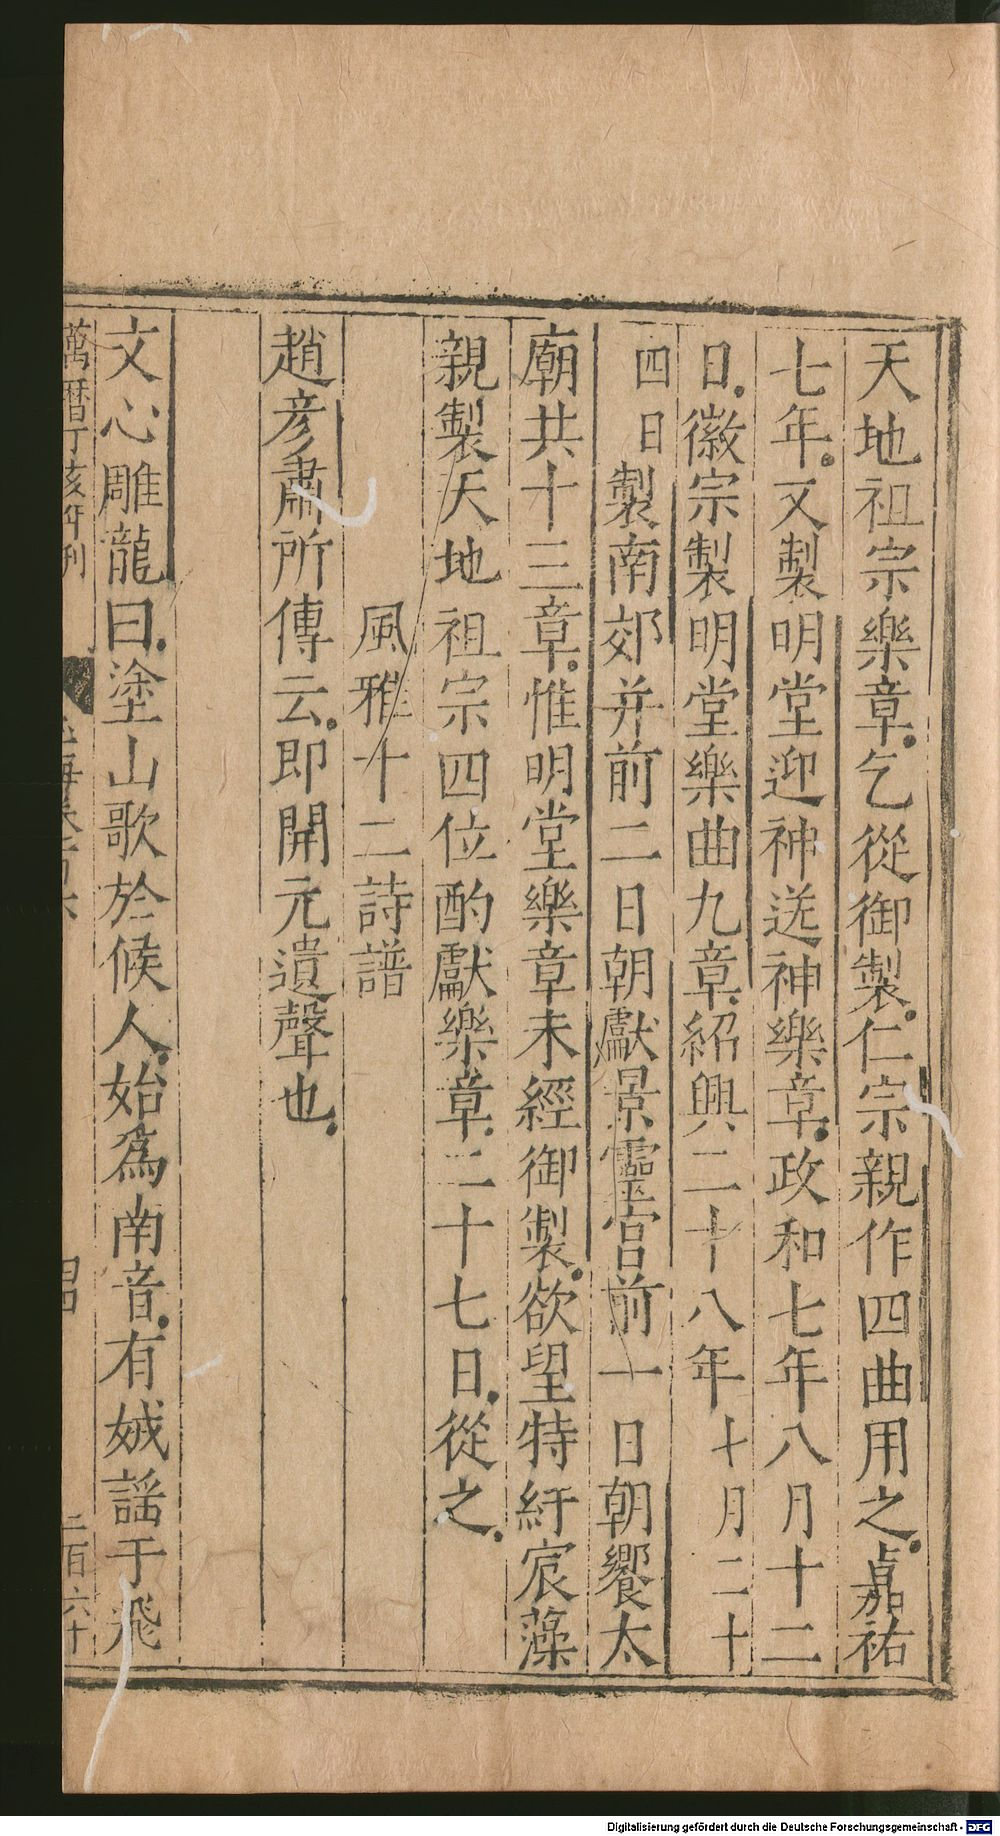 天地祖宗樂章乞從御製仁宗親作四曲用之嘉祐
七年又製明堂迎神送神樂章政和七年八月十二
日徽宗製明堂樂曲九章紹興二十八年十月二十
四日製南郊并前二日朝獻景靈宫前一日朝饗太
廟共十三章惟明堂樂章未經御製欲望特紆宸藻
親製天地祖宗四位酌獻樂章二十七日從之
風雅十二詩譜
趙彦肅所傳云即開元遺聲也
文心雕龍曰塗山歌於候人始爲南音有娀謡于飛
萬曆丁亥年刊
二百六十
Digitalisierung gefördert durch die Deutsche Forschungsgemeinschaft - DFG